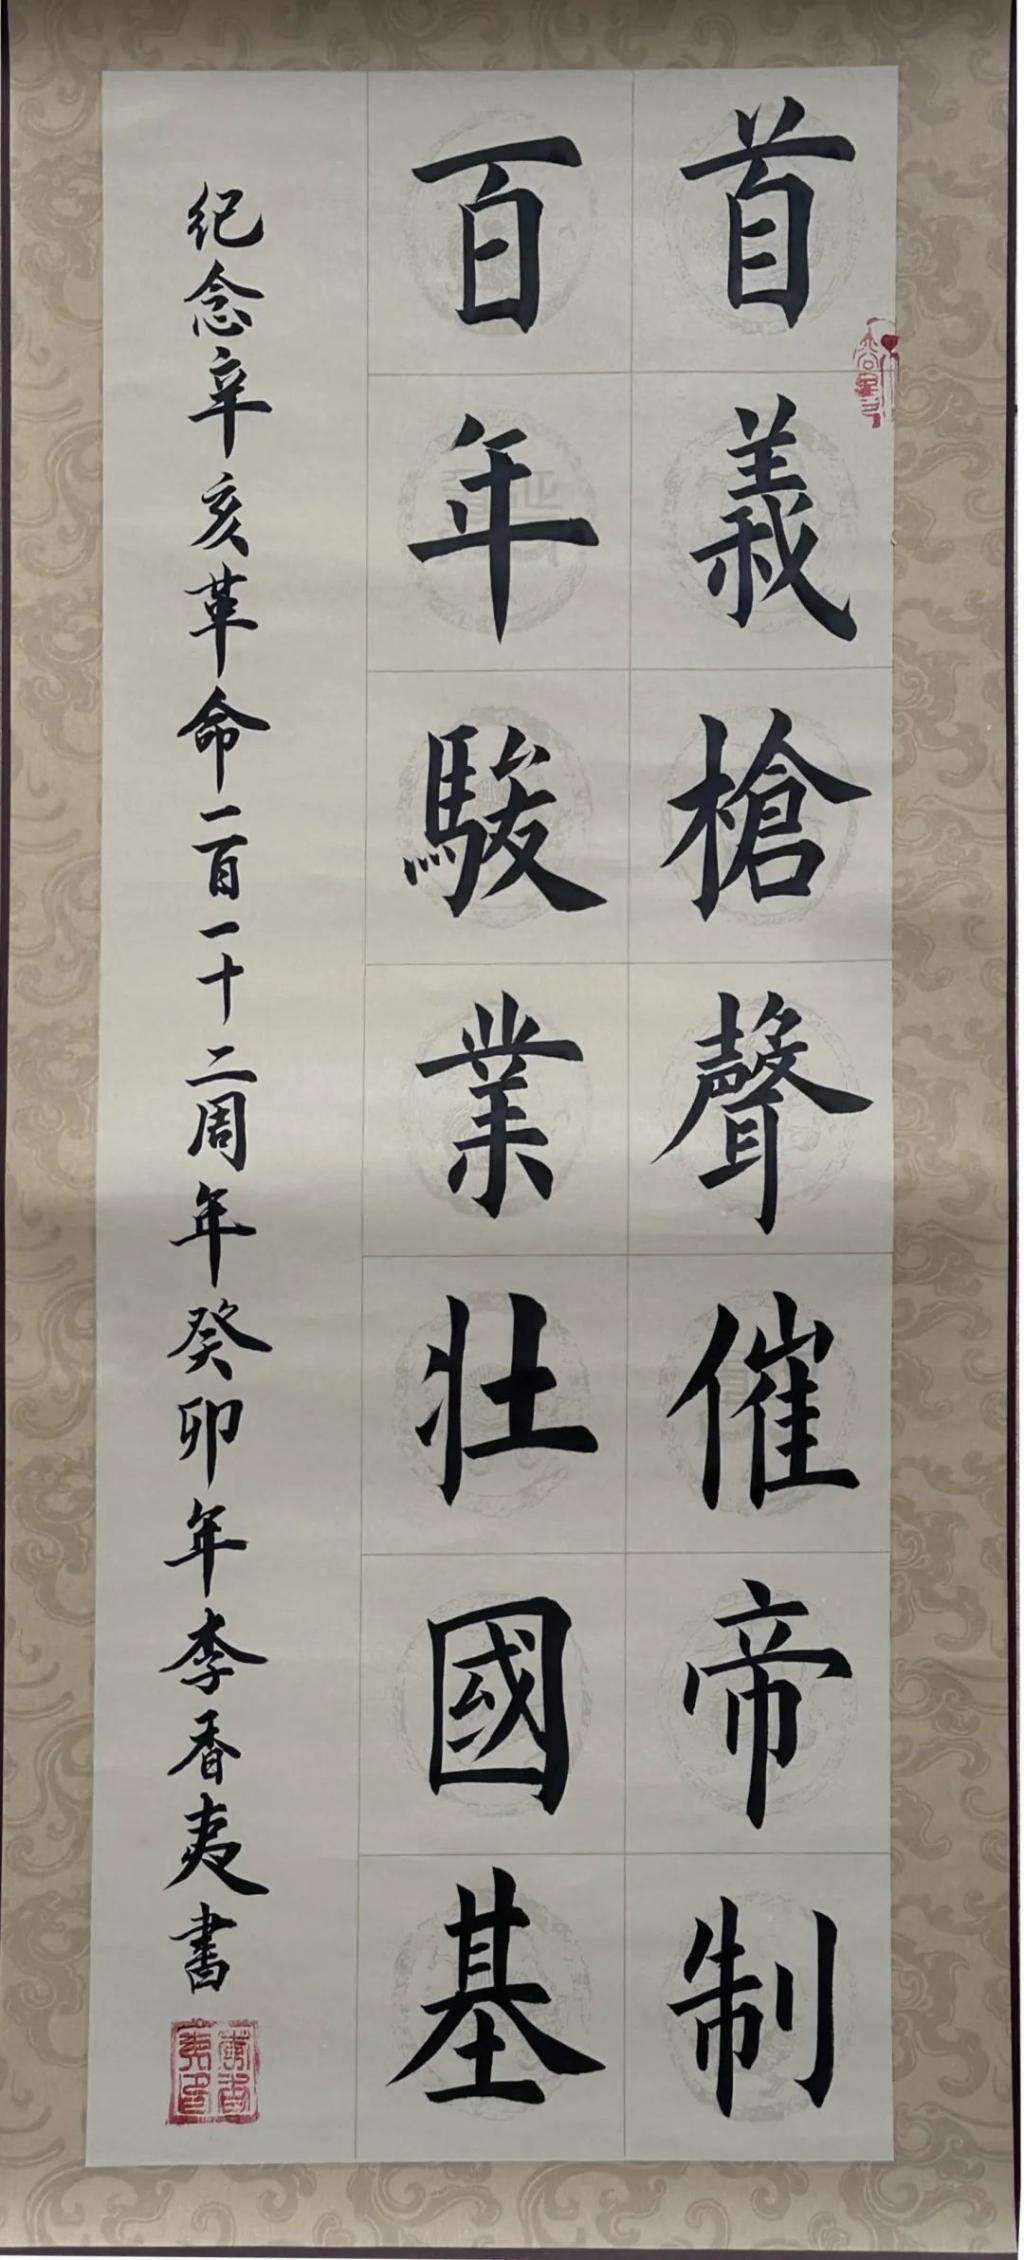 首義槍聲催帝制
百年駿業壯國基
纪念辛亥革命一百一十二周年癸卯年李香夷書